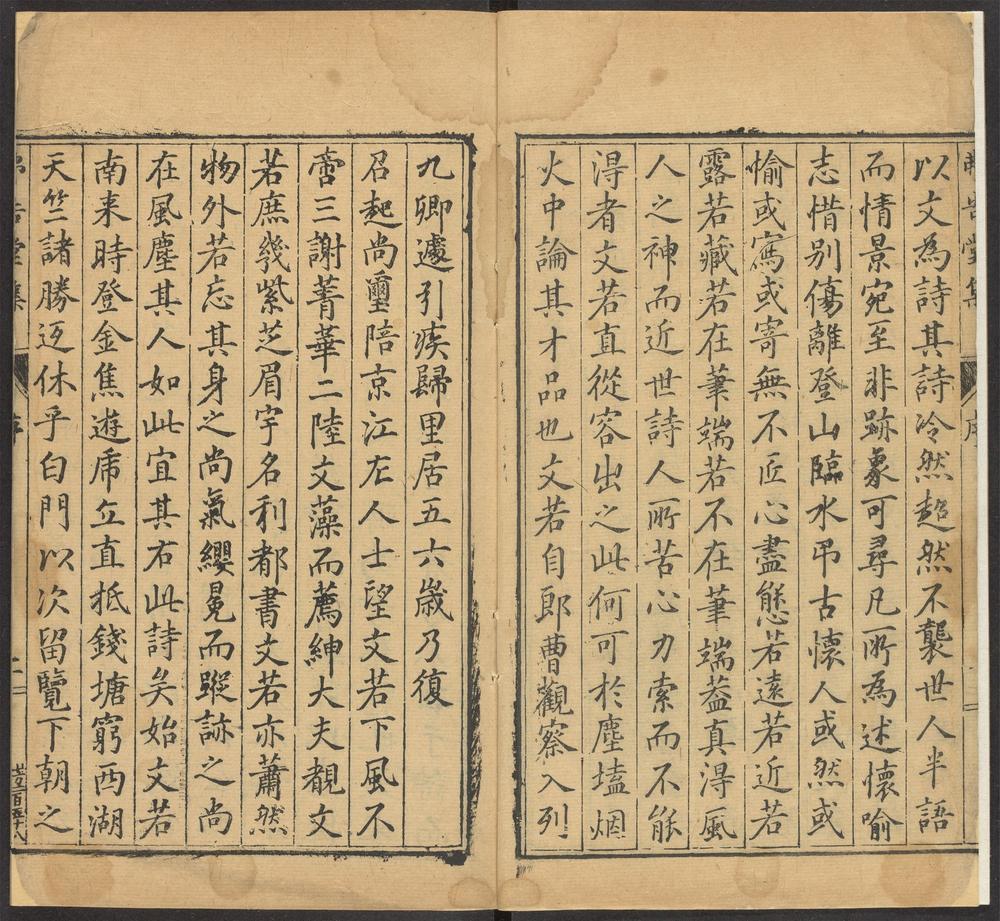 以文為詩其詩冷然超然不襲世人半語
而情景宛至非跡象可尋凡所為述懷喻
志惜别傷離登山臨水弔古懷人或然或
愉或寫或寄無不匠心盡態若遠若近若
露若藏若在筆端若不在筆端葢真得風
人之神而近世詩人所苦心力索而不能
得者文若直從容出之此何可於塵壒烟
火中論其才品也文若自郎曹觀察入列
九卿遽引疾歸里居五六歲乃復
召起尚璽陪京江左人士望文若下風不
啻三謝菁華二陸文藻而薦紳大夫覩文
若庶幾紫芝眉宇名利都書文若亦蕭然
物外若忘其身之尚氣纓冕而蹤跡之尚
在風塵其人如此宜其右此詩矣始文若
南來時登金焦遊虎丘直抵錢塘窮西湖
天竺諸勝迓休乎白門以次留覽下朝之
序
二